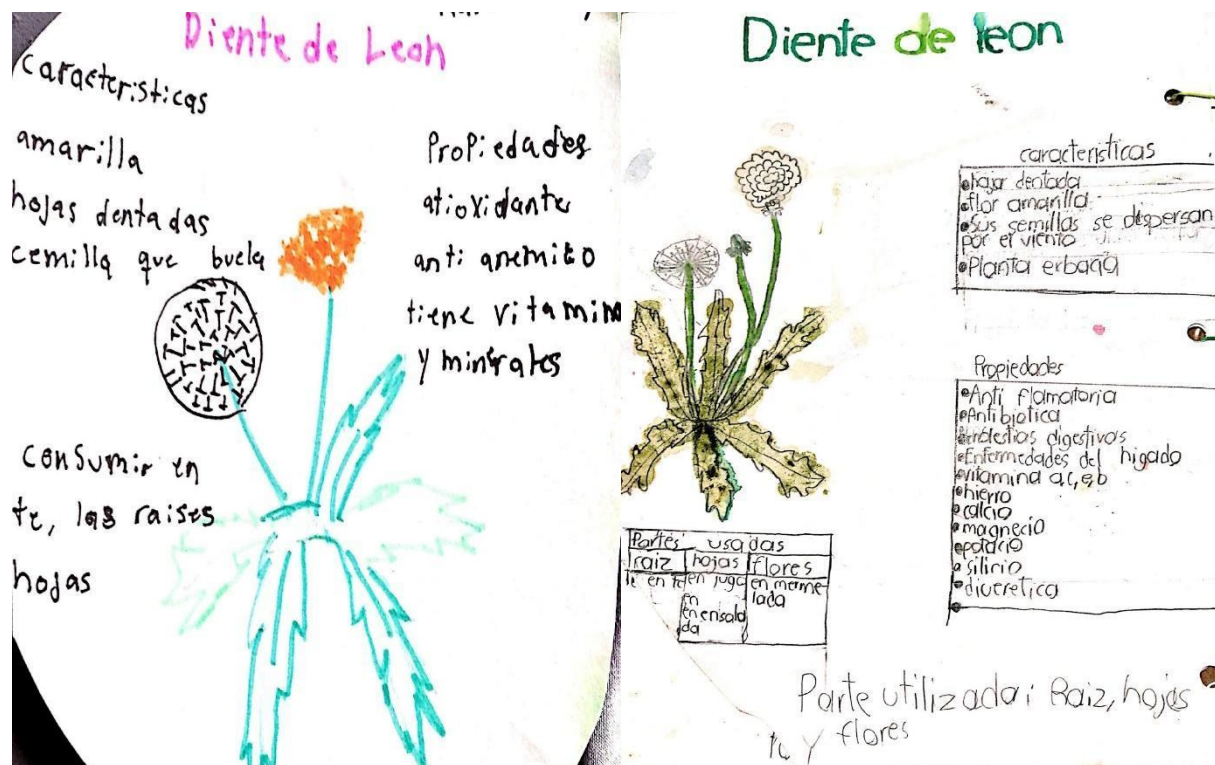 Diente de Leon
caracteristicas
amarilla
hojas dentadas
cemilla que buela
Propiedades
atioxidante
anti anemico
tiene vitamina
y minerales
consumir en
te, las raises
hojas
Diente de leon
caracteristicas
hoja dentada
flor amarilla
Sus semillas se dispersan
por el viento
Planta erbacia
Propiedades
Anti flamatoria
Antibiotica
molestias digestivas
Enfermedades del higado
vitamina a,c,e,b
hierro
calcio
magnecio
potacio
silirio
diuretica
Partes usadas
raiz hojas flores
en te en jugo en merme-
lada
en ensala
da
Parte utilizada: Raiz, hojas
y flores